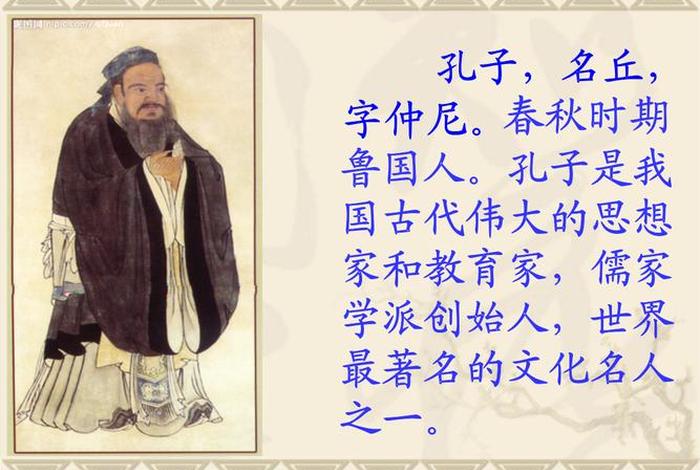 孔子，名丘，
字仲尼。春秋时期
鲁国人。孔子是我
国古代伟大的思想
家和教育家，儒家
学派创始人，世界
最著名的文化名人
之一。